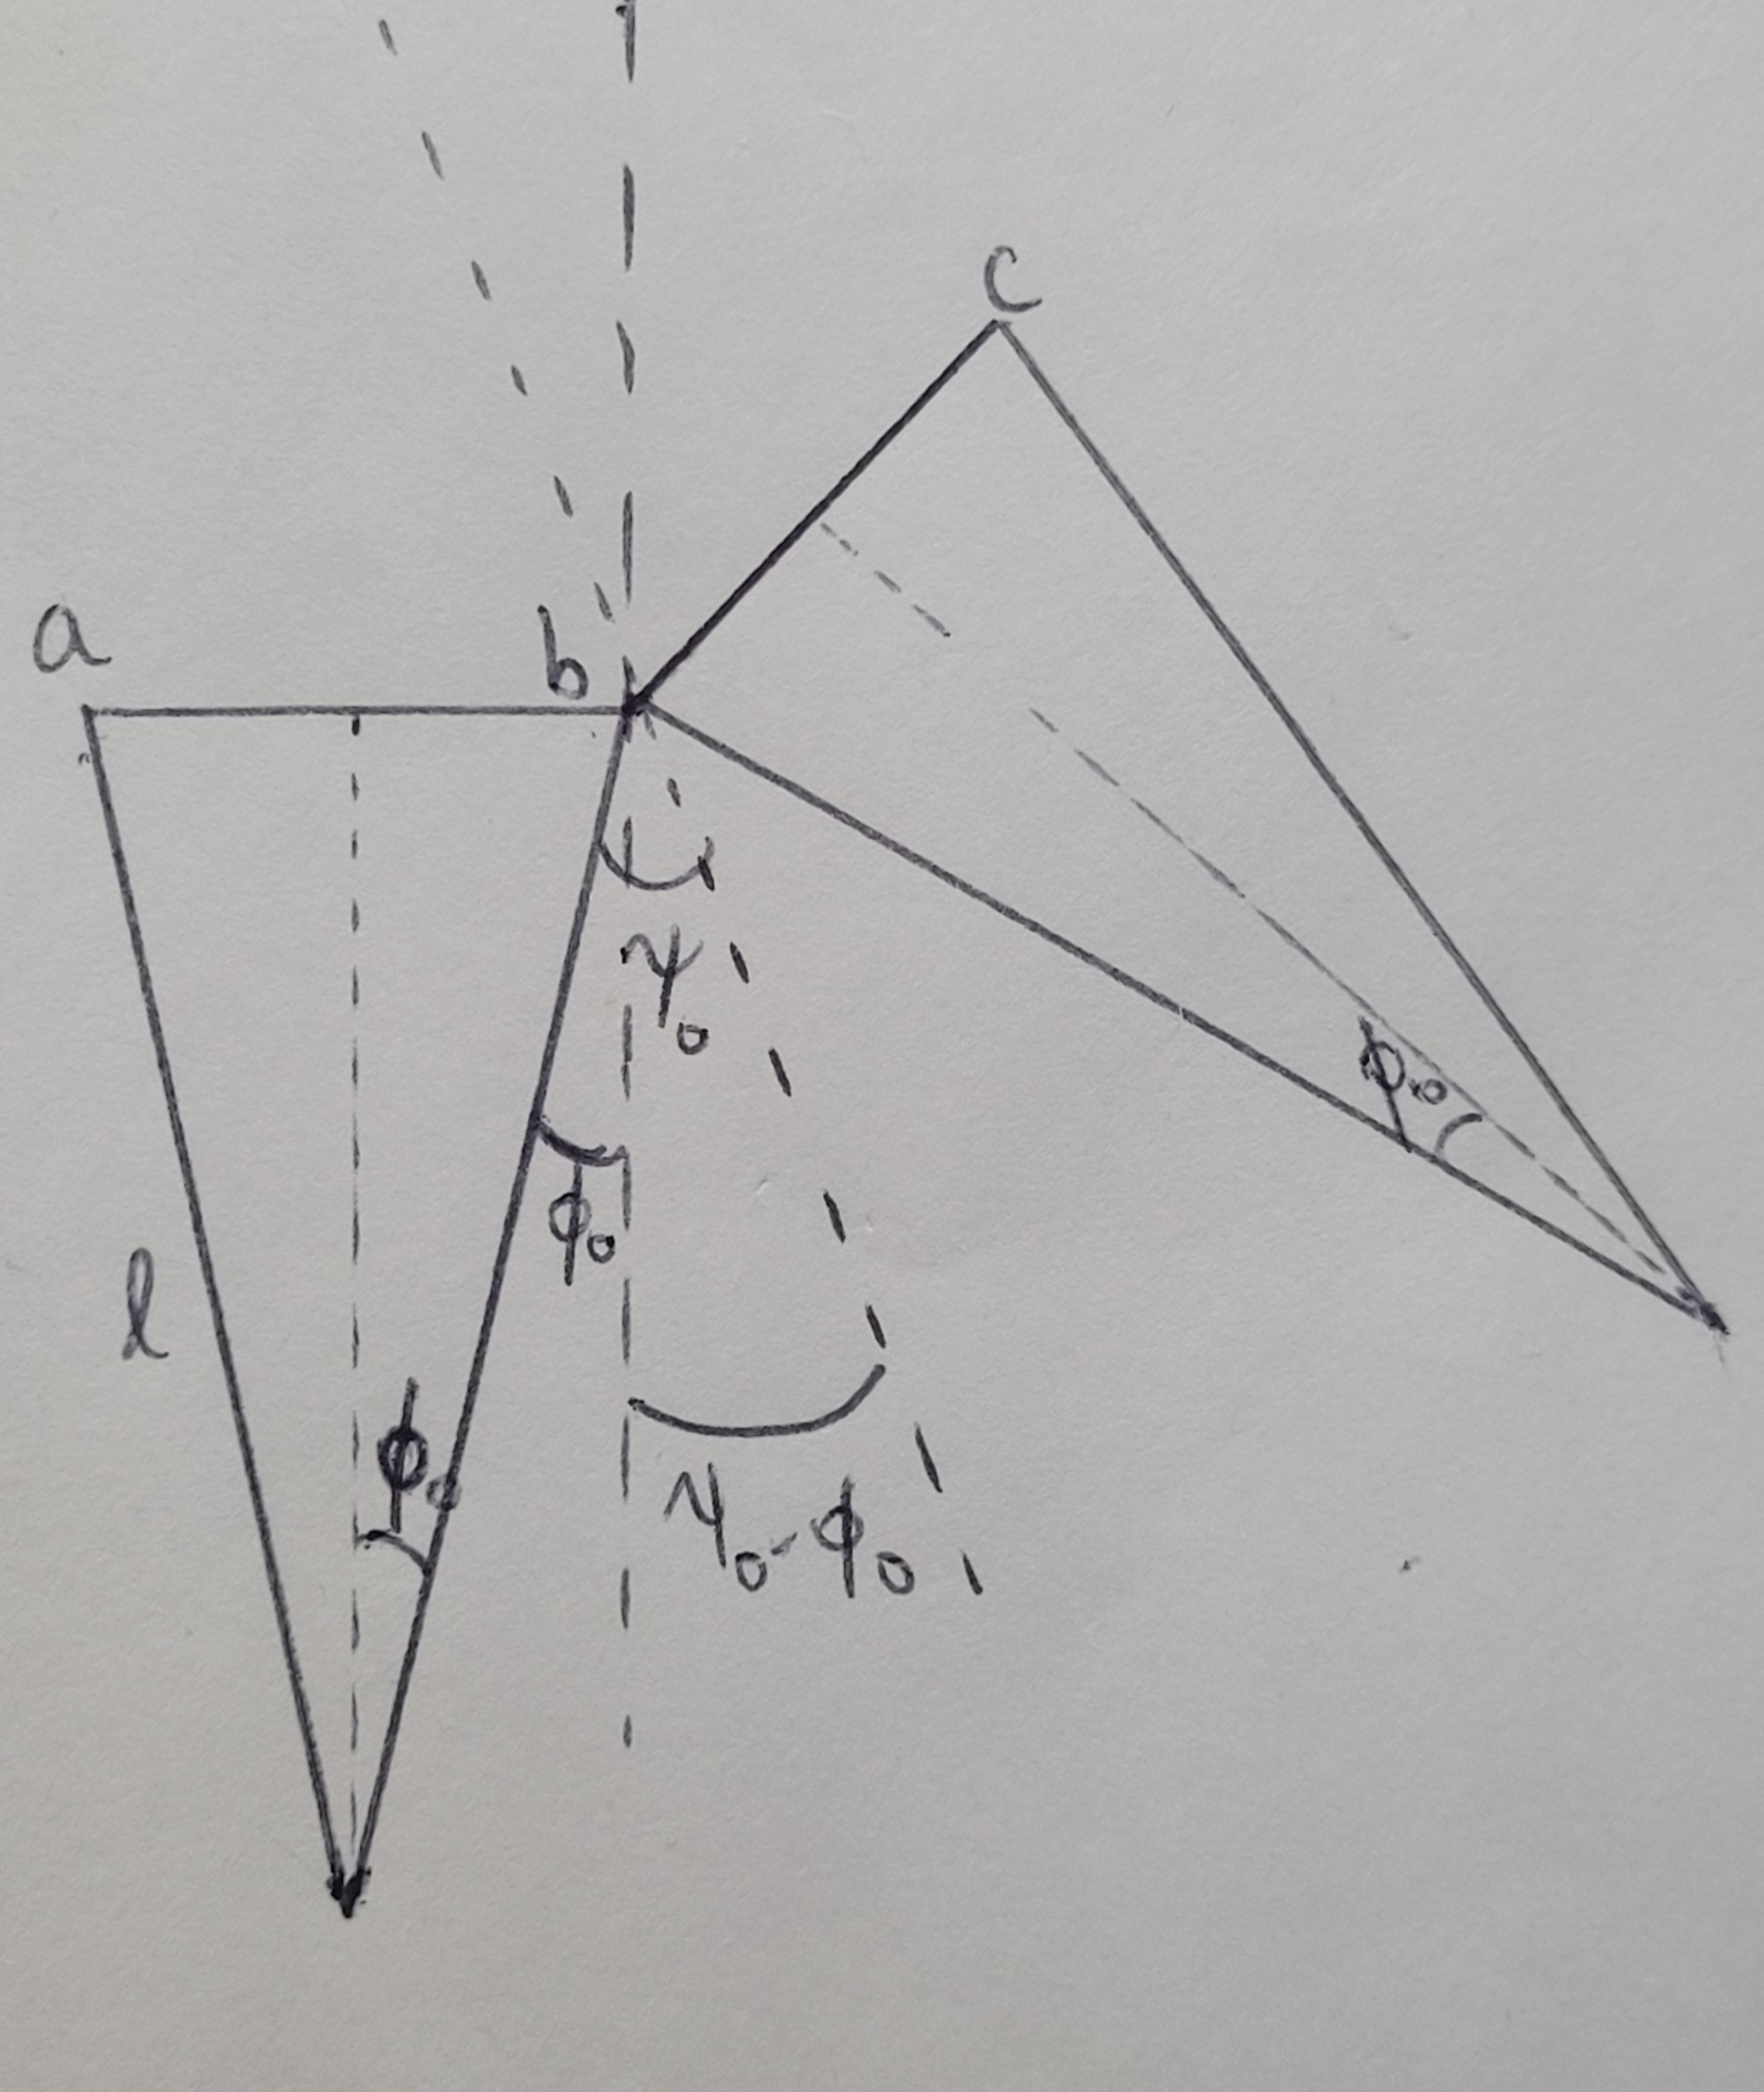 c
a
b
ψ₀
ϕ₀
ϕ₀
l
ϕ₀
ψ₀-ϕ₀